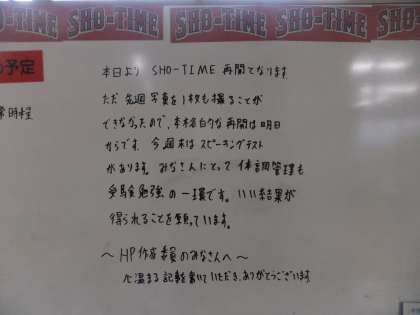 SHO-TIME SHO-TIME SHO-TIME SHO-TIME
の予定
常時程
本日より SHO-TIME 再開となります
ただ 先週 写真を1枚も撮ることが
できなかったので、本格的な再開は明日
からです。今週末は スピーキングテスト
があります。みなさんにとって 体調管理も
受験勉強の一環です。いい結果が
得られることを願っています。
～HP作成委員のみなさんへ～
心温まる記載を書いていただき、ありがとうございます